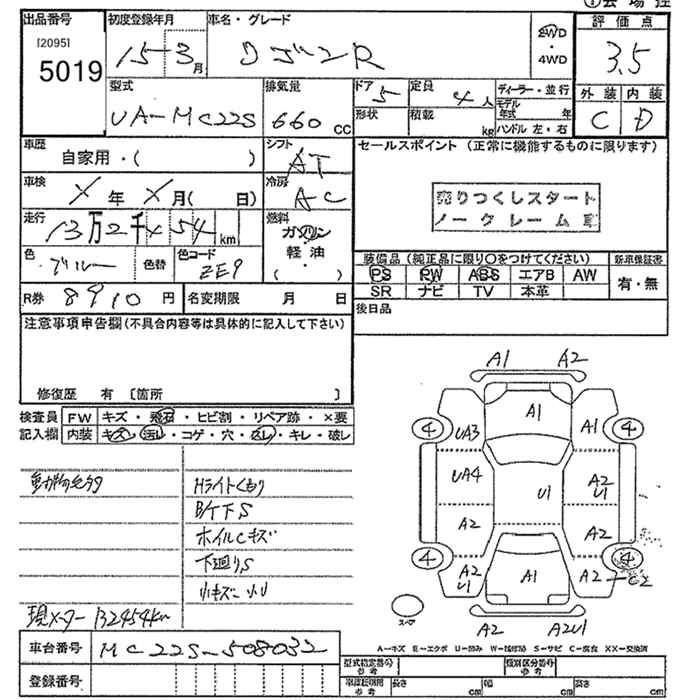 出品番号
[2095]
5019
初度登録年月
15-3月
車名・グレード
ワゴンR
2WD
・
4WD
評価点
3.5
外装 内装
C D
型式
UA-MC22S
排気量
660 CC
ドア
5
形状
定員
4人
積載
kg
ディーラー・並行
モデル
年式 年
ハンドル 左・右
車歴
自家用・( )
シフト
AT
セールスポイント (正常に機能するものに限ります)
売りつくしスタート
ノークレーム車
車検
X年 X月( 日)
冷房
AC
走行
13万2千454km
燃料
ガソリン
軽油
( )
色
ブルー
色替
色コード
ZE9
装備品 (純正品に限り○をつけてください)
新車保証書
PS PW ABS エアB AW
有・無
SR ナビ TV 本革
R券 8910円
名変期限 月 日
後日品
注意事項申告欄(不具合内容等は具体的に記入して下さい)
修復歴 有 〔箇所 〕
検査員
記入欄
FW キズ・飛石・ヒビ割・リペア跡・×要
内装 キズ・汚レ・コゲ・穴・・キレ・破レ
Hライトくもり
B/ドS
ホイルCキズ
下廻りS
小キズ・小U
現メーター132454km
車台番号
MC22S-508032
登録番号
A1 A2
A1
4 UA3 A1 4
UA4 U1 A2
U1
A2 A2
4 A2 A1 A2 C2 4
U1
スペア
A2 A2U1
A-キズ E-エクボ U-凹み W-補修跡 S-サビ C-腐食 XX-交換済
型式指定番号
参考
類別区分番号
参考
車庫証明用
参考
長さ cm
幅 cm
高さ cm